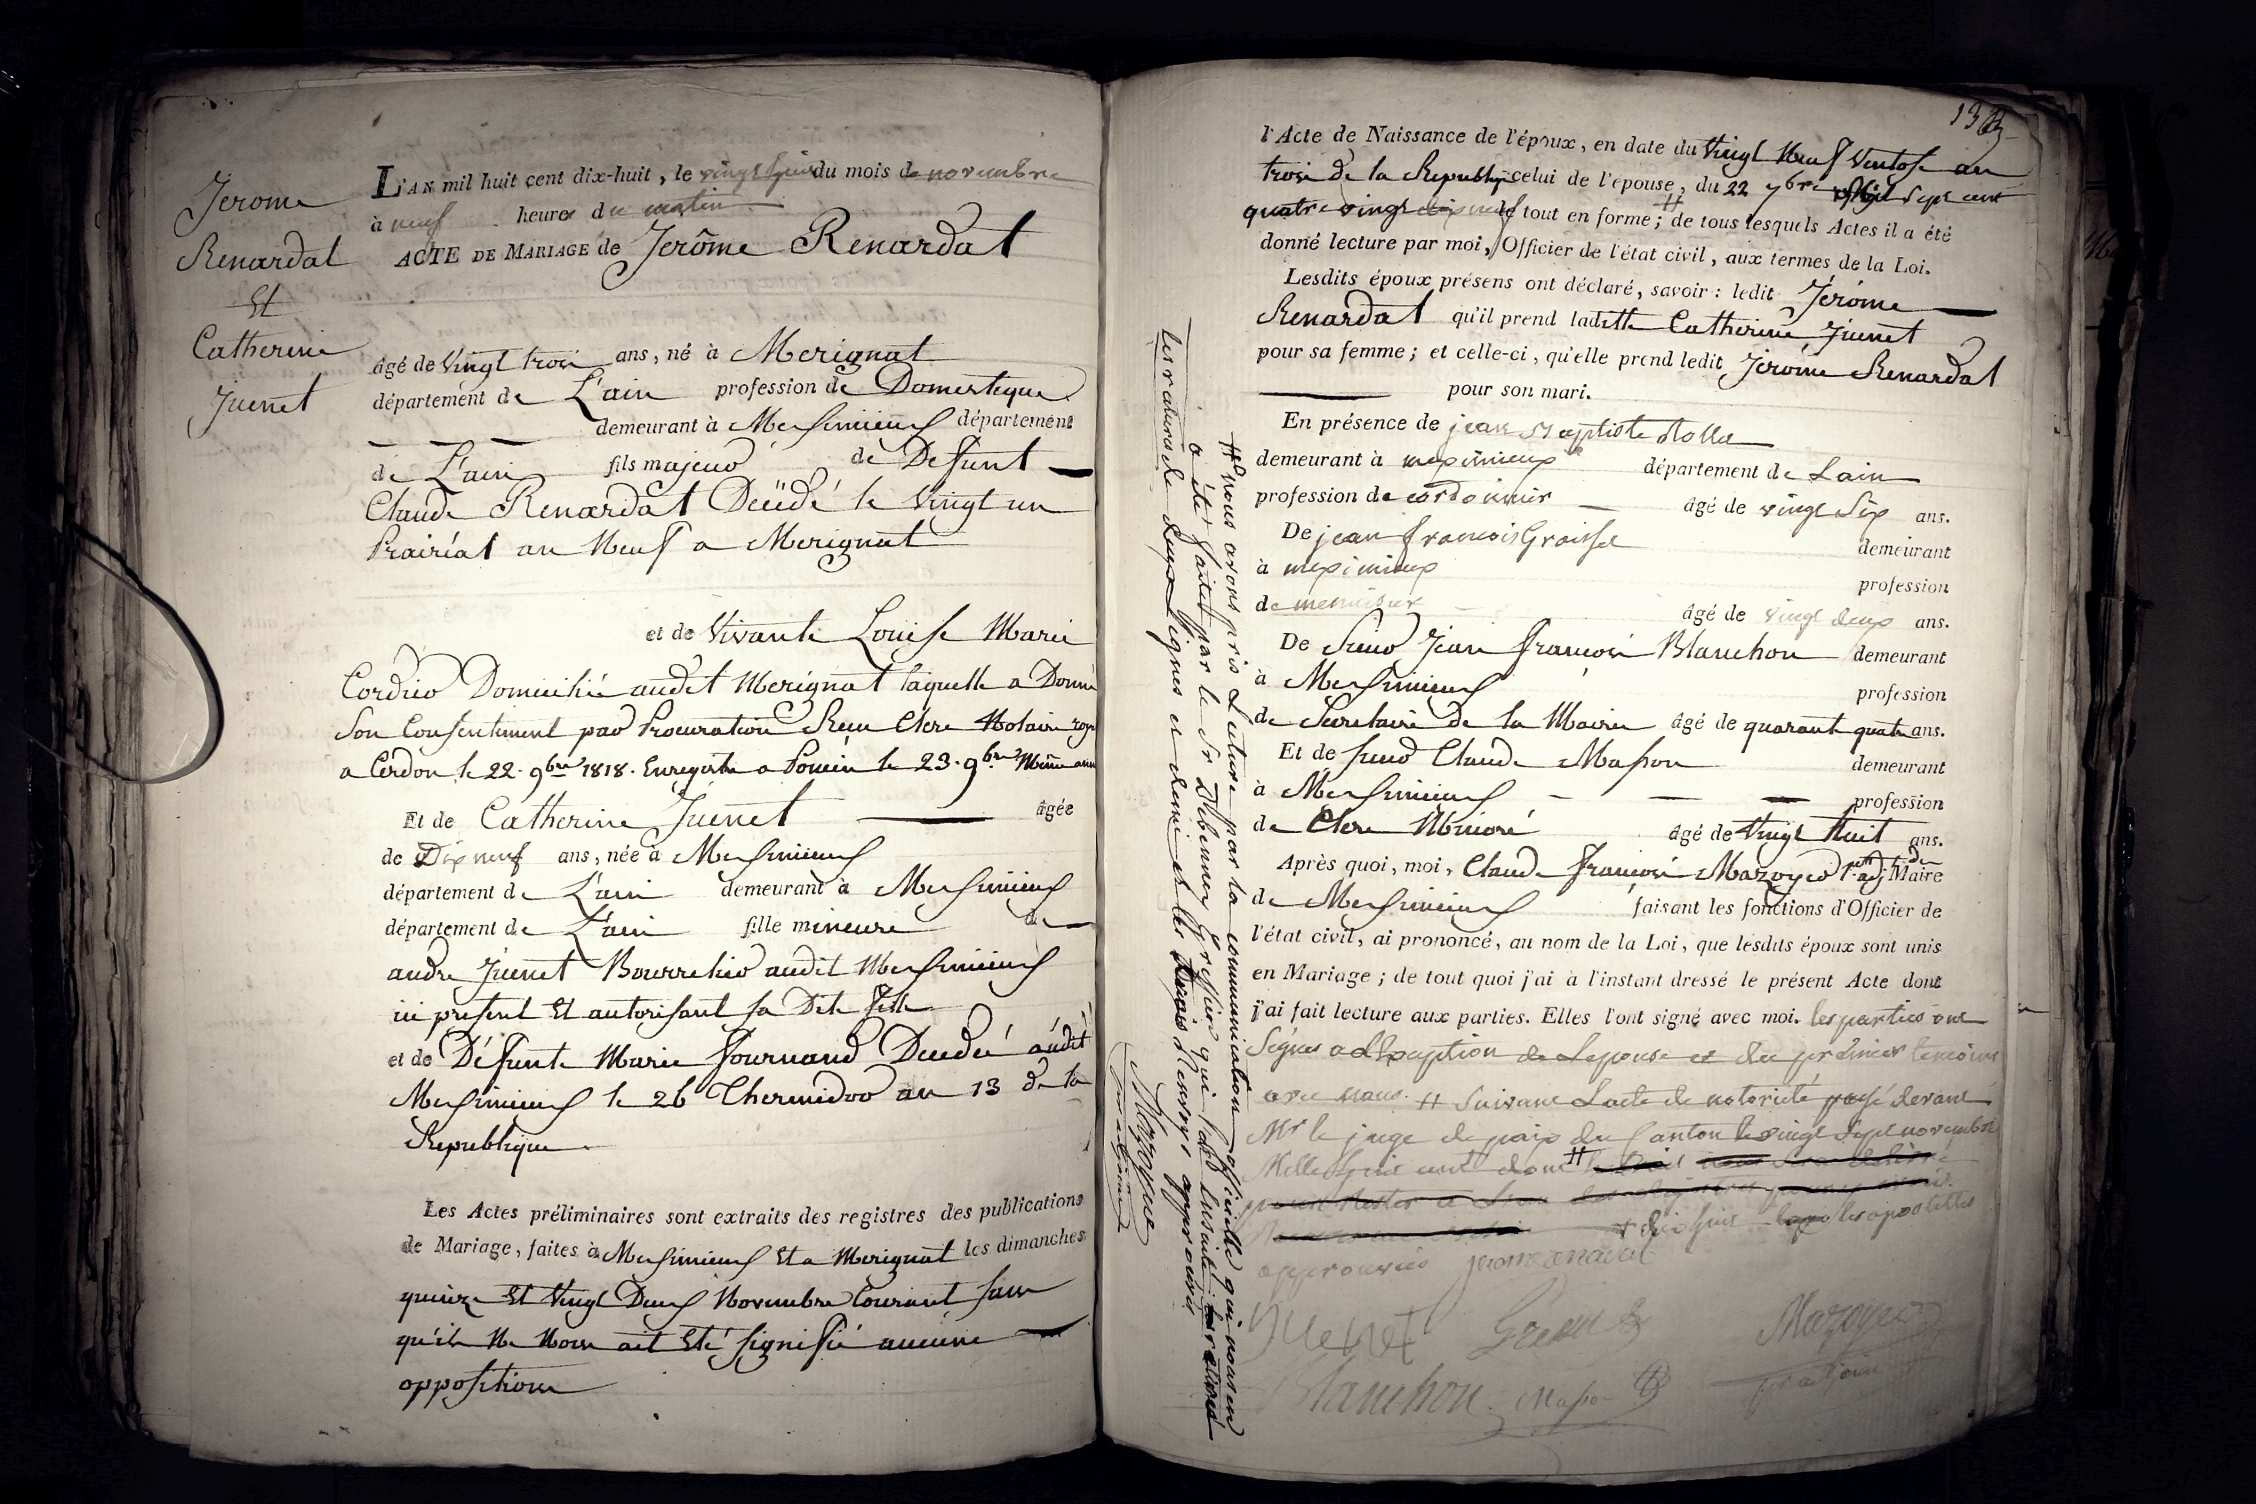 Jerome
Renardat
Et
Catherine
Juenet
L'AN mil huit cent dix-huit, le vingt huit du mois de novembre
à neuf heures du matin
ACTE DE MARIAGE de Jerôme Renardat
âgé de Vingt trois ans, né à Merignat
département de L'ain profession de Domestique
demeurant à Meximieux département
de L'ain fils majeur de Defunt
Claude Renardat Décédé le Vingt un
Prairial an Neuf a Merignat
et de Vivante Louise Marie
Cordier Domiciliée audit Merignat laquelle a Donné
Son Consentement par Procuration Reçu Clerc Notaire royal
a Cerdon le 22. 9bre 1818. Enregistré a Poncin le 23. 9bre Même année
Et de Catherine Juenet âgée
de Dix neuf ans, née à Meximieux
département de L'ain demeurant à Meximieux
département de L'ain fille mineure de
andré Juenet Bourrelier audit Meximieux
ici présent Et autorisant sa Dite fille
et de Défunte Marie Fournand Décédée audit
Meximieux le 26 Thermidor an 13 de la
Republique
Les Actes préliminaires sont extraits des registres des publications
de Mariage, faites à Meximieux Et a Merignat les dimanches
quinze Et Vingt Deux Novembre Courant sans
qu'il Ne Nous ait Eté signifié aucune
opposition
l'Acte de Naissance de l'époux, en date du Vingt Neuf Ventose an
trois de la Republique celui de l'épouse, du 22 7bre Mil Sept cent
quatre vingt dix neuf le tout en forme; # de tous lesquels Actes il a été
donné lecture par moi, Officier de l'état civil, aux termes de la Loi.
Lesdits époux présens ont déclaré, savoir: ledit Jerôme
Renardat qu'il prend ladite Catherine Juenet
pour sa femme; et celle-ci, qu'elle prend ledit Jerôme Renardat
pour son mari.
En présence de jean Baptiste Rolla
demeurant à meximieux département de Lain
profession de cordonnier âgé de vingt Six ans.
De jean francois demeurant
à meximieux profession
de menuisier âgé de vingt deux ans.
De Sieur Jean François Blanchon demeurant
à Meximieux profession
de Secretaire de la Mairie âgé de quarante quatre ans.
Et de sieur Claude Masson demeurant
à Meximieux profession
de Clerc Minoré âgé de Vingt Huit ans.
Après quoi, moi, Claude François Mazoyer 1er adj. de Maire
de Meximieux faisant les fonctions d'Officier de
l'état civil, ai prononcé, au nom de la Loi, que lesdits époux sont unis
en Mariage; de tout quoi j'ai à l'instant dressé le présent Acte dont
j'ai fait lecture aux parties. Elles l'ont signé avec moi. les parties ont
Signés a Lexception de Lepouse et du premier temoins
avec nous. # Suivant Lacte de notorieté passé devant
Mr le juge de paix du Canton le vingt Sept novembre
Mille huit cent dont #
dix huit les apostilles
approuvées jerome renardat
Juenet Mazoyer
Blanchon Masson
# nous avons pris Lecture par la communication officielle qui nous en
a été faite par le Sr greffier qui
les ratures de deux Lignes et demie et les mots d'envoyé approuvés
Mazoyer